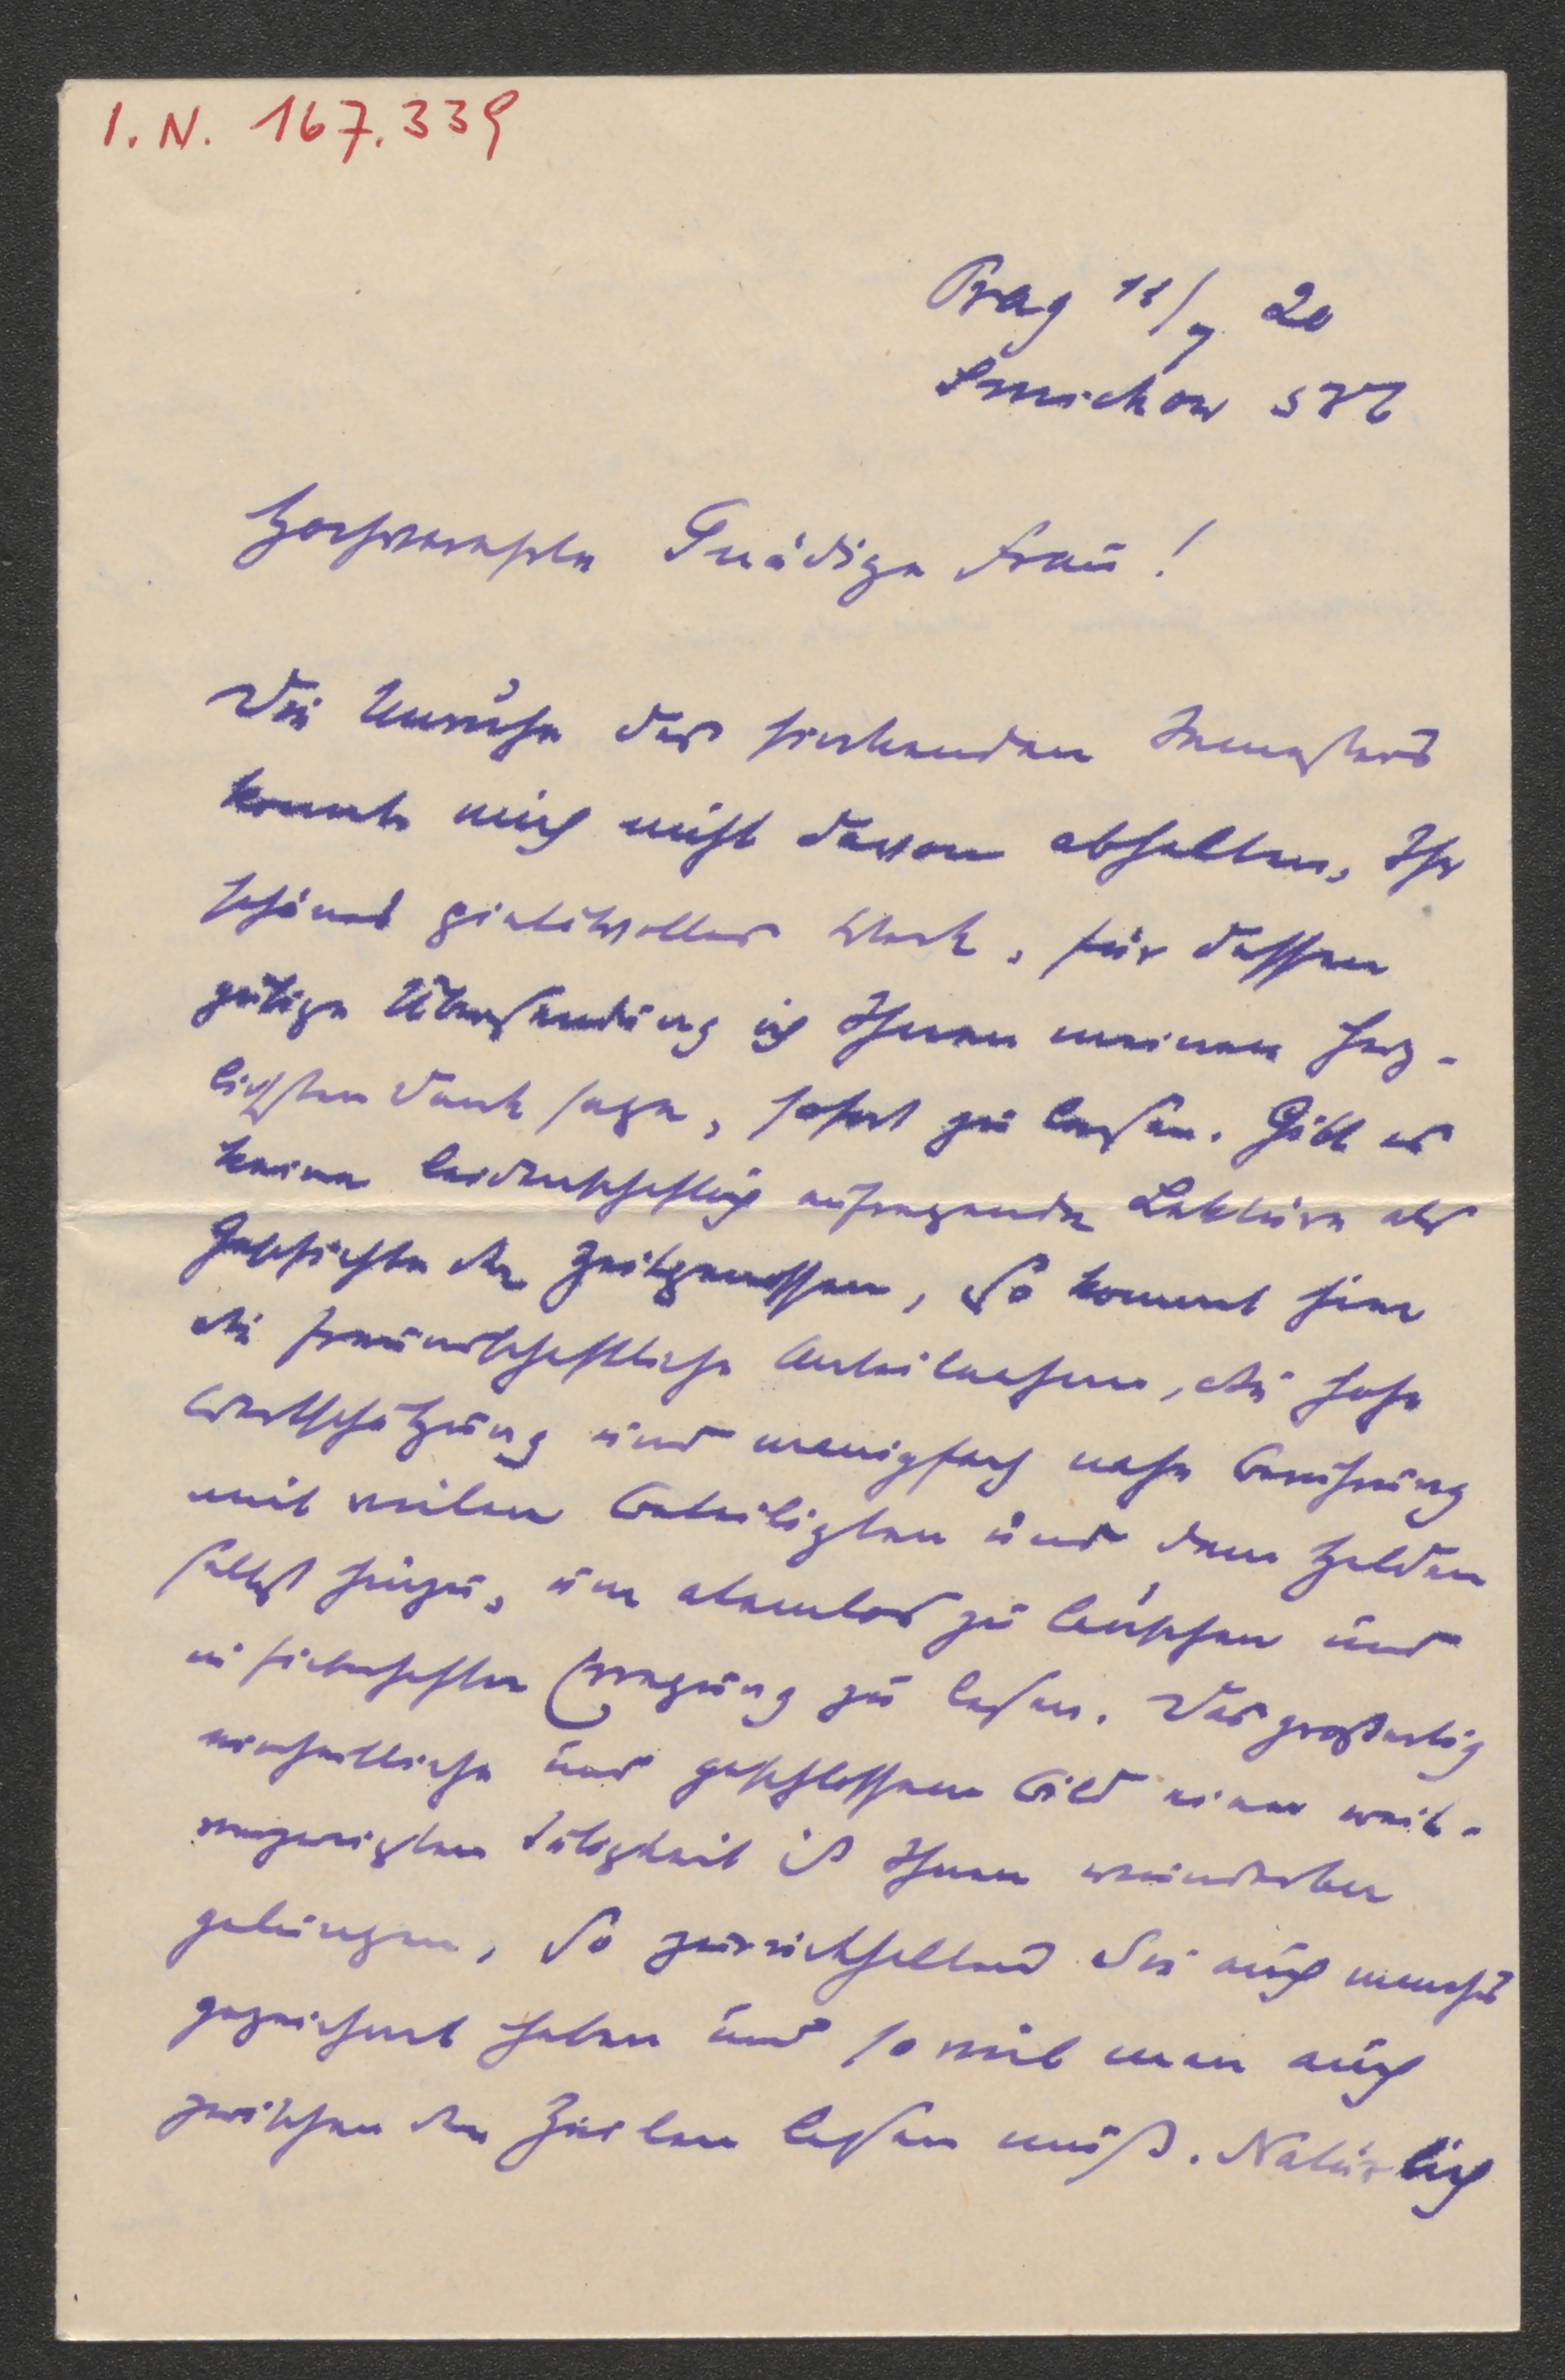 I. N. 167.339
Prag 18/7 20
Smichow 586
Hochverehrte Gnädige Frau!
Die Unruhe des sinkenden Semesters
konnte mich nicht davon abhalten, Ihr
schönes pietätvolles Werk, für dessen
gütige Übersendung ich Ihnen meinen herz-
lichsten Dank sage, sofort zu lesen. Gibt es
keine leidenschaftlich aufregendere Lektüre als
Geschichte der Zeitgenossen, so kommt hier
die freundschaftliche Anteilnahme, die hohe
Wertschätzung und manigfach nahe Berührung
mit vielen Beteiligten und dem Helden
selbst hinzu, um atemlos zu lauschen und
in fieberhafter Erregung zu lesen. Das großartig
einheitliche und geschlossene Bild einer weit-
verzweigten Tätigkeit ist Ihnen wunderbar
gelungen, so zurückhaltend Sie auch manches
gezeichnet haben und so viel man auch
zwischen den Zeilen lesen muß. Natürlich